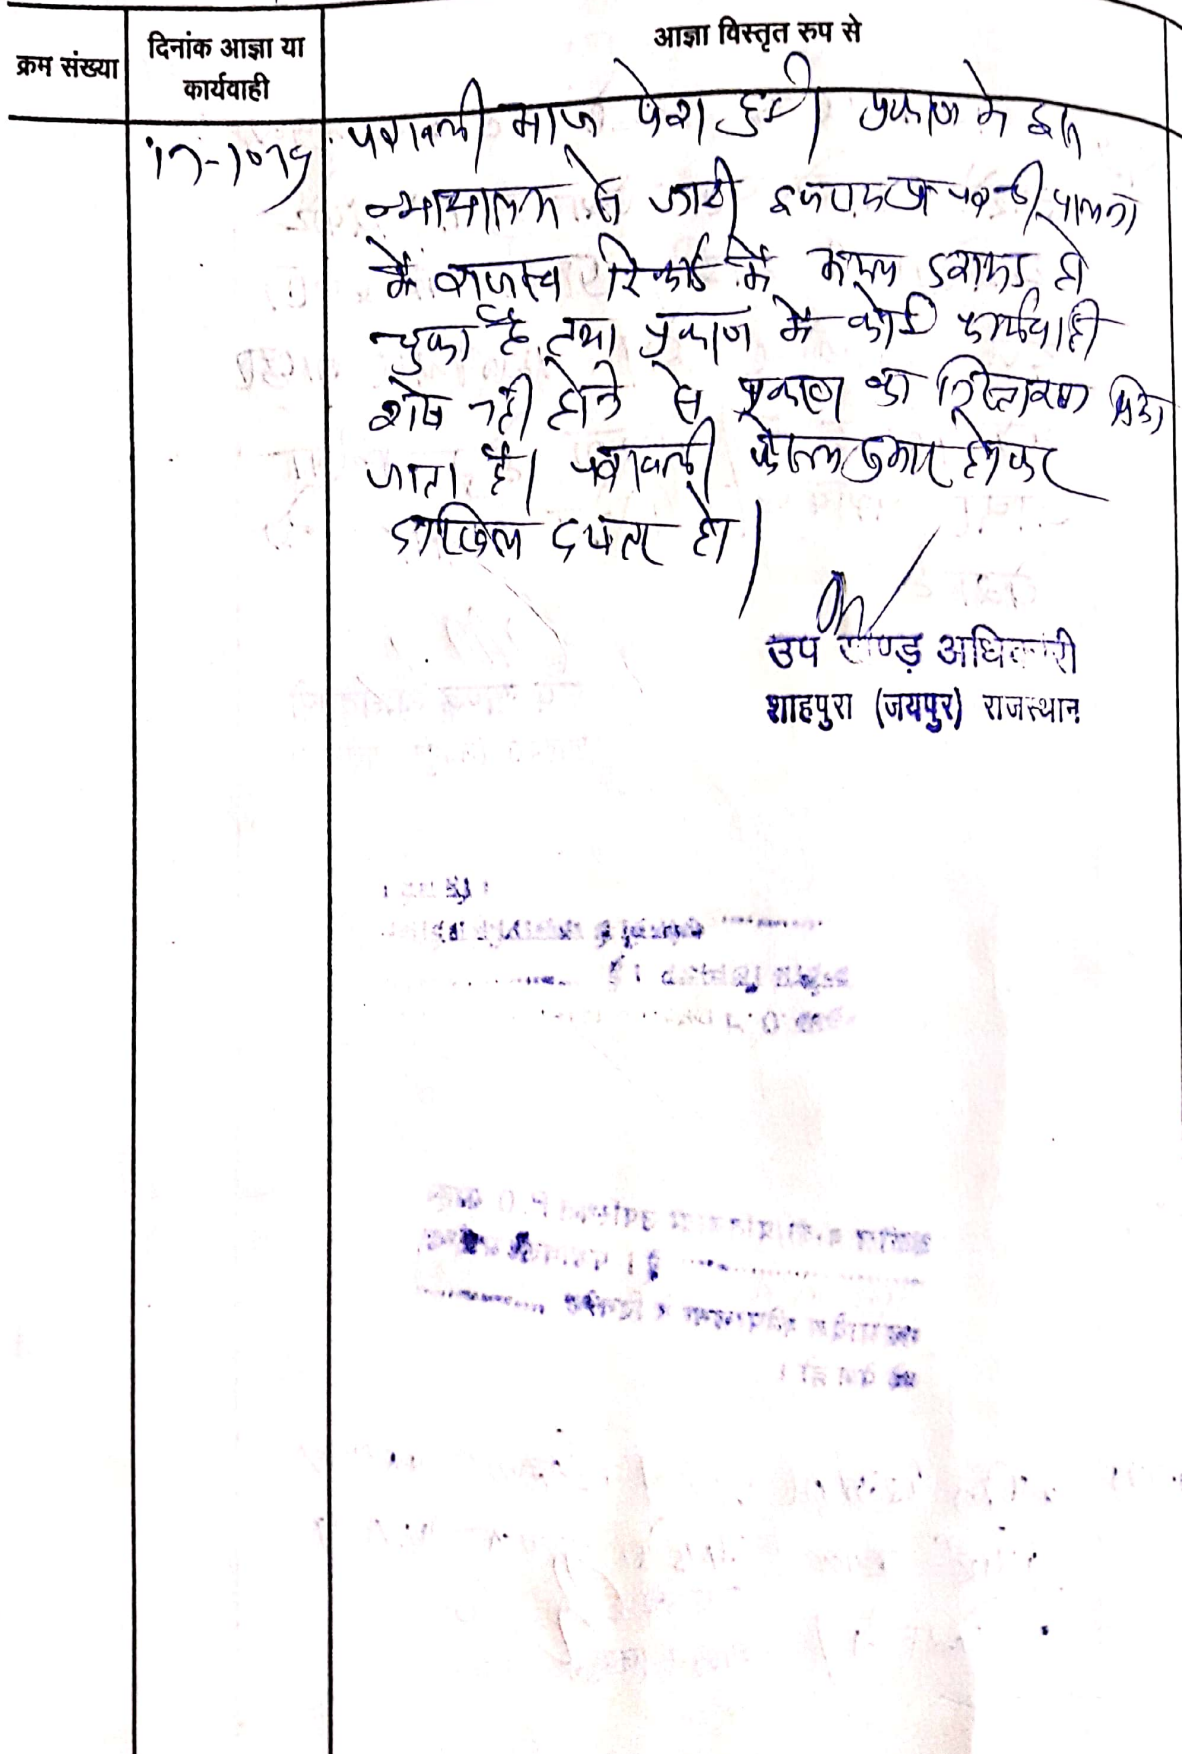 क्रम संख्या
दिनांक आज्ञा या
कार्यवाही
आज्ञा विस्तृत रुप से
पत्रावली आज पेश हुई। प्रकरण में इस
न्यायालय से जारी पत्र की पालना
में राजस्व रिकॉर्ड में अमल दरामद हो
चुका है तथा प्रकरण में कोई कार्यवाही
शेष नहीं होने से प्रकरण का निस्तारण किया
जाता है। पत्रावली फैसल शुमार होकर
दाखिल दफ्तर हो।
उप खण्ड अधिकारी
शाहपुरा (जयपुर) राजस्थान